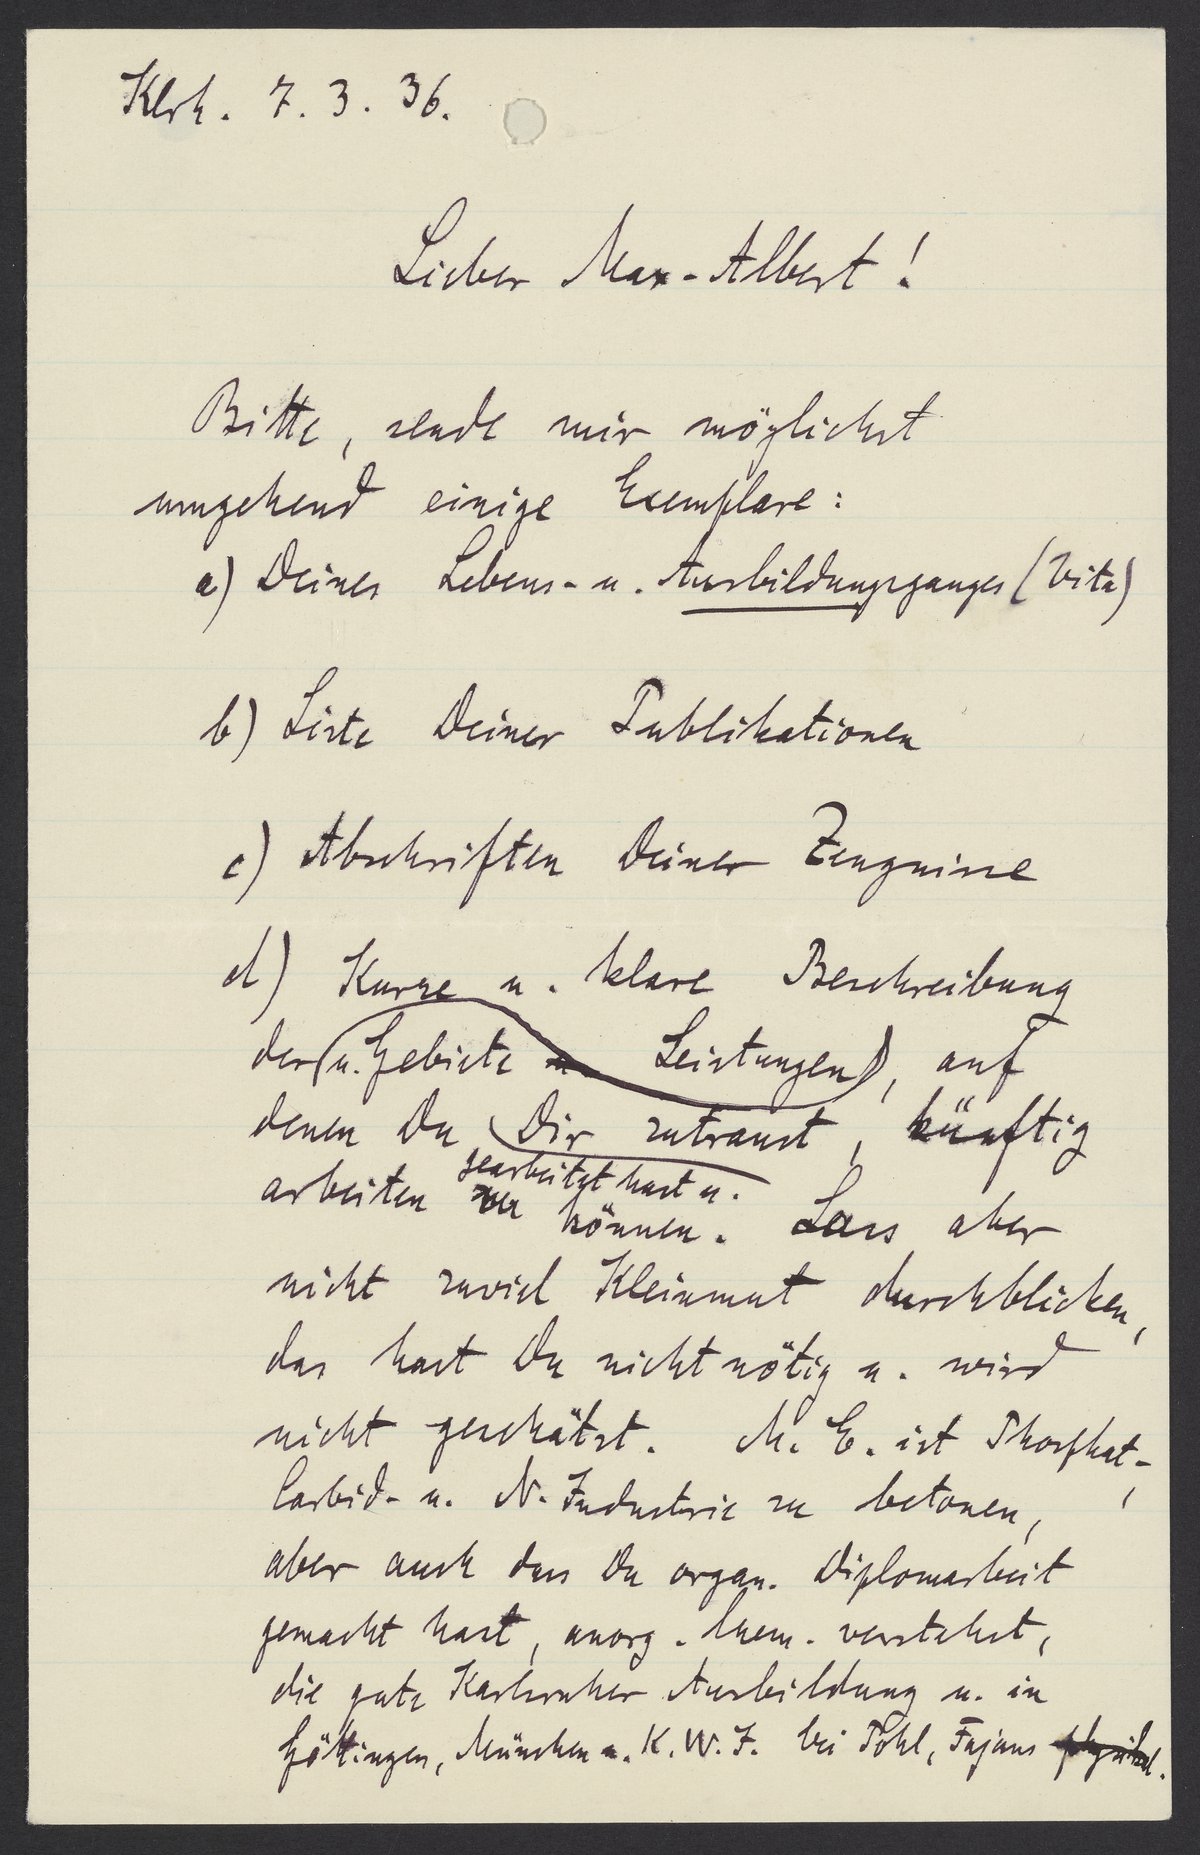 Klrh. 7. 3. 36.
Lieber Max-Albert!
Bitte, sende mir möglichst
umgehend einige Exemplare:
a) Deines Lebens- u. Ausbildungsganges (Vita)
b) Liste Deiner Publikationen
c) Abschriften Deiner Zeugnisse
d) Kurze u. klare Beschreibung
der (u. Gebiete Leistungen), auf
denen Du Dir zutraust, künftig
gearbeitet hast u.
arbeiten zu können. Lass aber
nicht zuviel Kleinmut durchblicken,
das hast Du nicht nötig u. wird
nicht geschätzt. M. E. ist Phosphat-,
Carbid- u. N-Industrie zu betonen,
aber auch dass Du organ. Diplomarbeit
gemacht hast, anorg. Chem. verstehst,
die gute Karlsruher Ausbildung u. in
Göttingen, München u. K.W.I. bei Pohl, Fajans